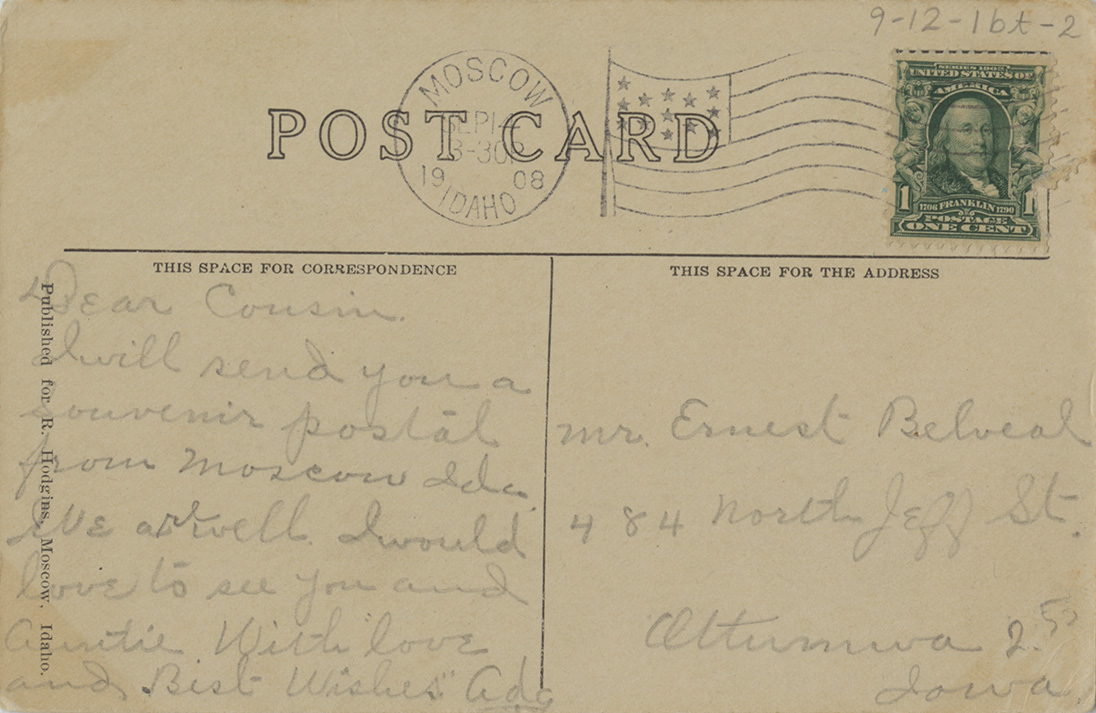 9-12-1bt-2
SERIES 1902
UNITED STATES OF
AMERICA
1 1706 FRANKLIN 1790 1
POSTAGE
ONE CENT
MOSCOW
SEP
3-30P
19 08
IDAHO
POST CARD
THIS SPACE FOR CORRESPONDENCE
THIS SPACE FOR THE ADDRESS
Published for R. Hodgins, Moscow, Idaho.
Dear Cousin.
I will send you a
souvenir postal
from Moscow Ida
We ar well. I would
love to see you and
Auntie With love
and Best Wishes" Ada
Mr. Ernest Belveal
484 North Jeff St.
Ottumwa
Iowa.